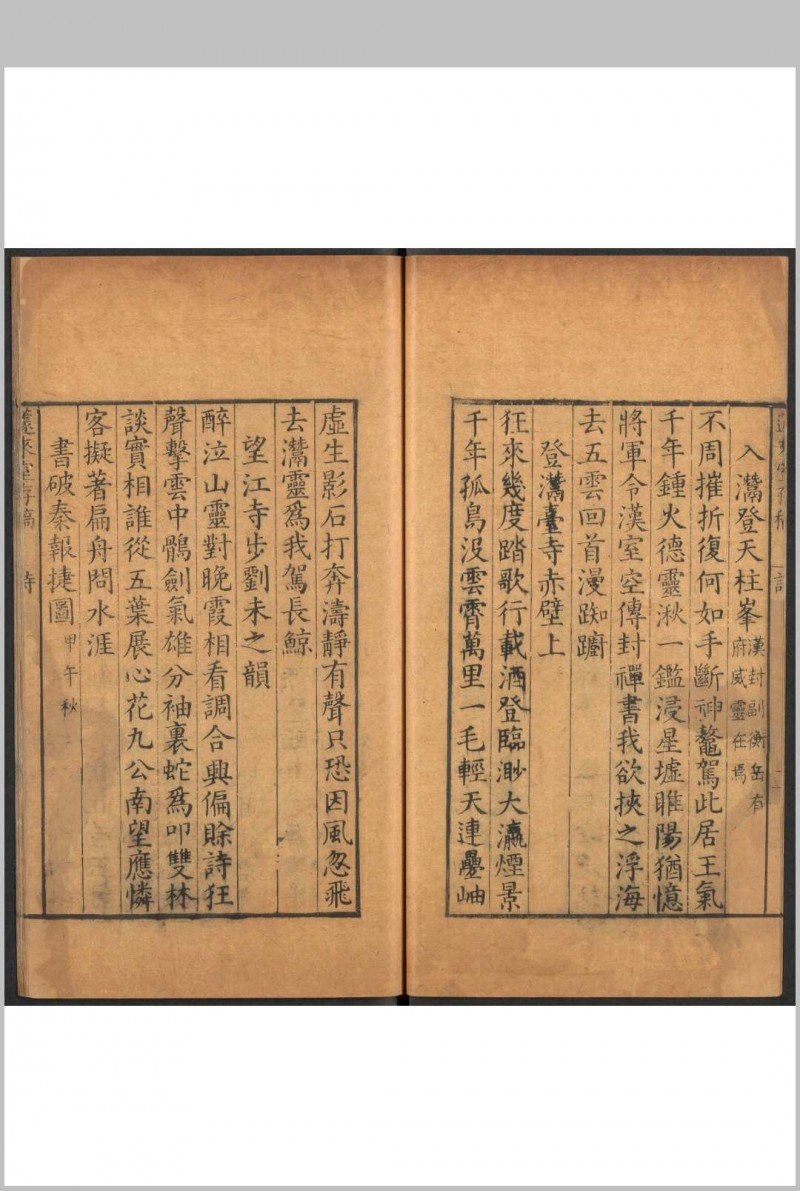 入灊登天柱峯 漢封副衡岳有府威靈在焉
不周摧折復何如手斷神鼇駕此居王氣
千年鍾火德靈湫一鑑浸星墟睢陽猶憶
將軍令漢室空傳封禪書我欲挾之浮海
去五雲回首漫踟躕
登灊臺寺赤壁上
狂來幾度踏歌行載酒登臨渺大瀛煙景
千年孤鳥没雲霄萬里一毛輕天連疊岫
虛生影石打奔濤靜有聲只恐因風忽飛
去灊靈爲我駕長鯨
望江寺步劉未之韻
醉泣山靈對晚霞相看調合興偏賒詩狂
聲擊雲中鶻劍氣雄分袖裏蛇爲叩雙林
談實相誰從五葉展心花九公南望應憐
客擬著扁舟問水涯
書破秦報捷圖 甲午秋
來室存稿 詩